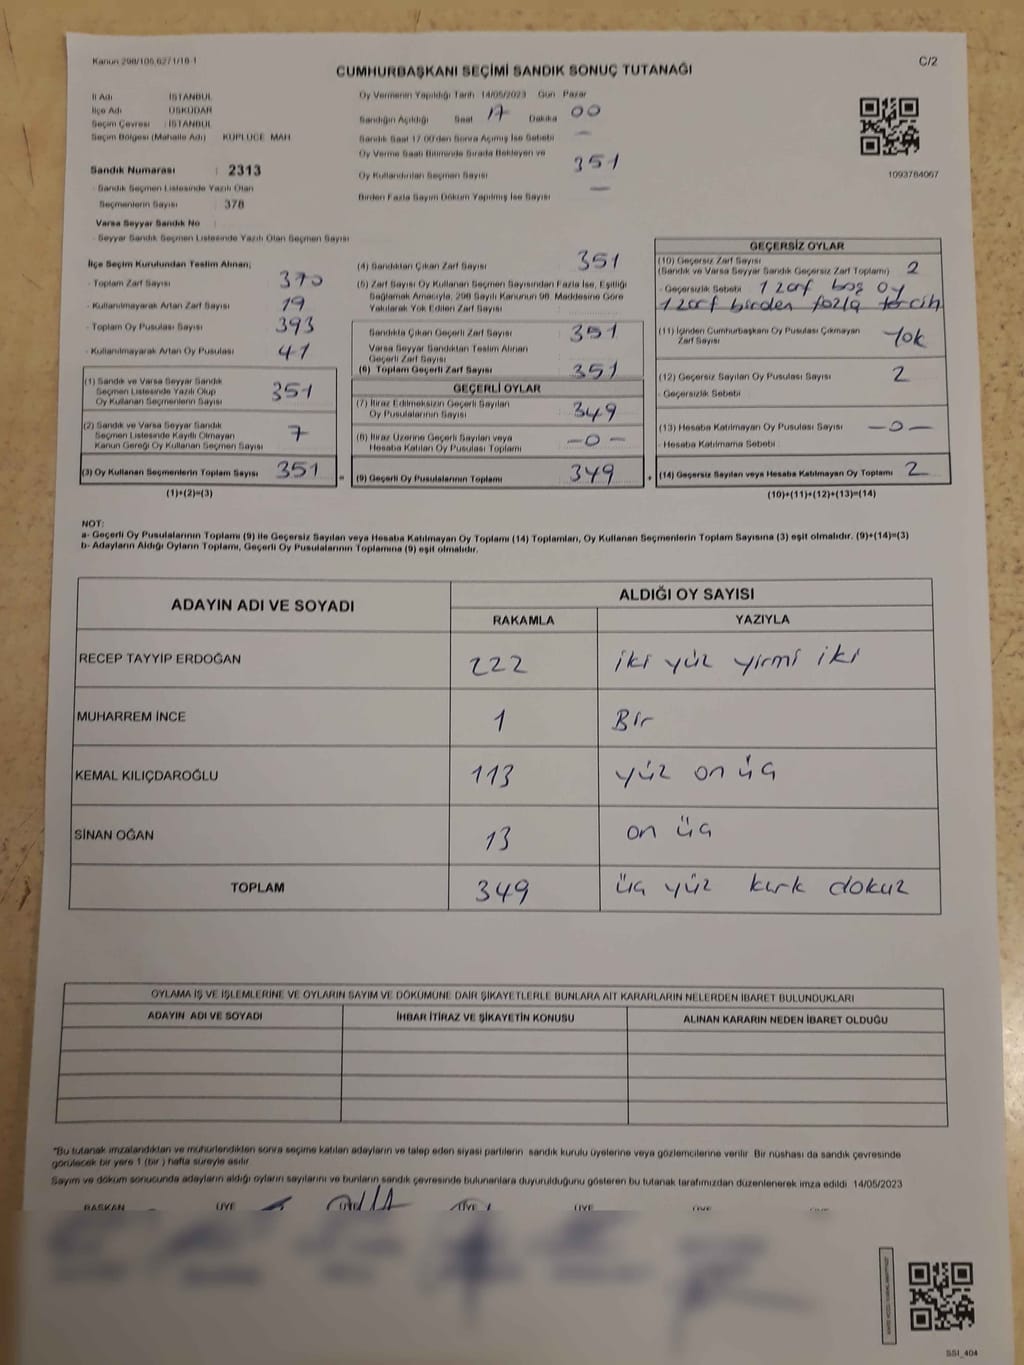 Kanun 298/105,6271/18-1
C/2
CUMHURBAŞKANI SEÇİMİ SANDIK SONUÇ TUTANAĞI
İl Adı İSTANBUL
İlçe Adı ÜSKÜDAR
Seçim Çevresi : İSTANBUL
Seçim Bölgesi (Mahalle Adı) KÜPLÜCE MAH
Sandık Numarası : 2313
- Sandık Seçmen Listesinde Yazılı Olan
Seçmenlerin Sayısı : 378
Varsa Seyyar Sandık No :
- Seyyar Sandık Seçmen Listesinde Yazılı Olan Seçmen Sayısı
Oy Vermenin Yapıldığı Tarih 14/05/2023 Gün Pazar
Sandığın Açıldığı Saat 17 Dakika 00
Sandık Saat 17.00'den Sonra Açılmış İse Sebebi —
Oy Verme Saati Bitiminde Sırada Bekleyen ve
Oy Kullandırılan Seçmen Sayısı 351
Birden Fazla Sayım Döküm Yapılmış İse Sayısı —
1093784067
İlçe Seçim Kurulundan Teslim Alınan;
- Toplam Zarf Sayısı : 370
- Kullanılmayarak Artan Zarf Sayısı : 19
- Toplam Oy Pusulası Sayısı : 393
- Kullanılmayarak Artan Oy Pusulası : 41
(1) Sandık ve Varsa Seyyar Sandık
Seçmen Listesinde Yazılı Olup
Oy Kullanan Seçmenlerin Sayısı : 351
(2) Sandık ve Varsa Seyyar Sandık
Seçmen Listesinde Kayıtlı Olmayan
Kanun Gereği Oy Kullanan Seçmen Sayısı : 7
(3) Oy Kullanan Seçmenlerin Toplam Sayısı : 351
(1)+(2)=(3)
(4) Sandıktan Çıkan Zarf Sayısı : 351
(5) Zarf Sayısı Oy Kullanan Seçmen Sayısından Fazla İse, Eşitliği
Sağlamak Amacıyla, 298 Sayılı Kanunun 98. Maddesine Göre
Yakılarak Yok Edilen Zarf Sayısı :
Sandıkta Çıkan Geçerli Zarf Sayısı : 351
Varsa Seyyar Sandıktan Teslim Alınan
Geçerli Zarf Sayısı :
(6) Toplam Geçerli Zarf Sayısı : 351
GEÇERLİ OYLAR
(7) İtiraz Edilmeksizin Geçerli Sayılan
Oy Pusulalarının Sayısı : 349
(8) İtiraz Üzerine Geçerli Sayılan veya
Hesaba Katılan Oy Pusulası Toplamı : -0-
= (9) Geçerli Oy Pusulalarının Toplamı : 349
GEÇERSİZ OYLAR
(10) Geçersiz Zarf Sayısı
(Sandık ve Varsa Seyyar Sandık Geçersiz Zarf Toplamı) : 2
- Geçersizlik Sebebi : 1 zarf boş oy
1 zarf birden fazla tercih
(11) İçinden Cumhurbaşkanı Oy Pusulası Çıkmayan
Zarf Sayısı : Yok
(12) Geçersiz Sayılan Oy Pusulası Sayısı : 2
- Geçersizlik Sebebi :
(13) Hesaba Katılmayan Oy Pusulası Sayısı : -0-
- Hesaba Katılmama Sebebi :
+ (14) Geçersiz Sayılan veya Hesaba Katılmayan Oy Toplamı : 2
(10)+(11)+(12)+(13)=(14)
NOT:
a- Geçerli Oy Pusulalarının Toplamı (9) ile Geçersiz Sayılan veya Hesaba Katılmayan Oy Toplamı (14) Toplamları, Oy Kullanan Seçmenlerin Toplam Sayısına (3) eşit olmalıdır. (9)+(14)=(3)
b- Adayların Aldığı Oyların Toplamı, Geçerli Oy Pusulalarının Toplamına (9) eşit olmalıdır.
ADAYIN ADI VE SOYADI
ALDIĞI OY SAYISI
RAKAMLA YAZIYLA
RECEP TAYYİP ERDOĞAN 222 iki yüz yirmi iki
MUHARREM İNCE 1 Bir
KEMAL KILIÇDAROĞLU 113 yüz on üç
SİNAN OĞAN 13 on üç
TOPLAM 349 üç yüz kırk dokuz
OYLAMA İŞ VE İŞLEMLERİNE VE OYLARIN SAYIM VE DÖKÜMÜNE DAİR ŞİKAYETLERLE BUNLARA AİT KARARLARIN NELERDEN İBARET BULUNDUKLARI
ADAYIN ADI VE SOYADI İHBAR İTİRAZ VE ŞİKAYETİN KONUSU ALINAN KARARIN NEDEN İBARET OLDUĞU
*Bu tutanak imzalandıktan ve mühürlendikten sonra seçime katılan adayların ve talep eden siyasi partilerin sandık kurulu üyelerine veya gözlemcilerine verilir. Bir nüshası da sandık çevresinde
görülecek bir yere 1 (bir ) hafta süreyle asılır
Sayım ve döküm sonucunda adayların aldığı oyların sayılarını ve bunların sandık çevresinde bulunanlara duyurulduğunu gösteren bu tutanak tarafımızdan düzenlenerek imza edildi. 14/05/2023
BAŞKAN ÜYE ÜYE ÜYE ÜYE ÜYE ÜYE
SSI_404